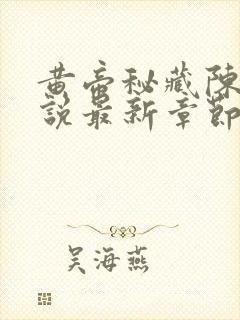 黄帝秘藏陈
說最新章節
吴海燕